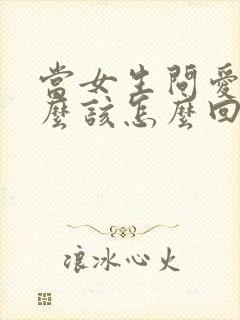 當女生問愛
麼該怎麼回
浪冰心火